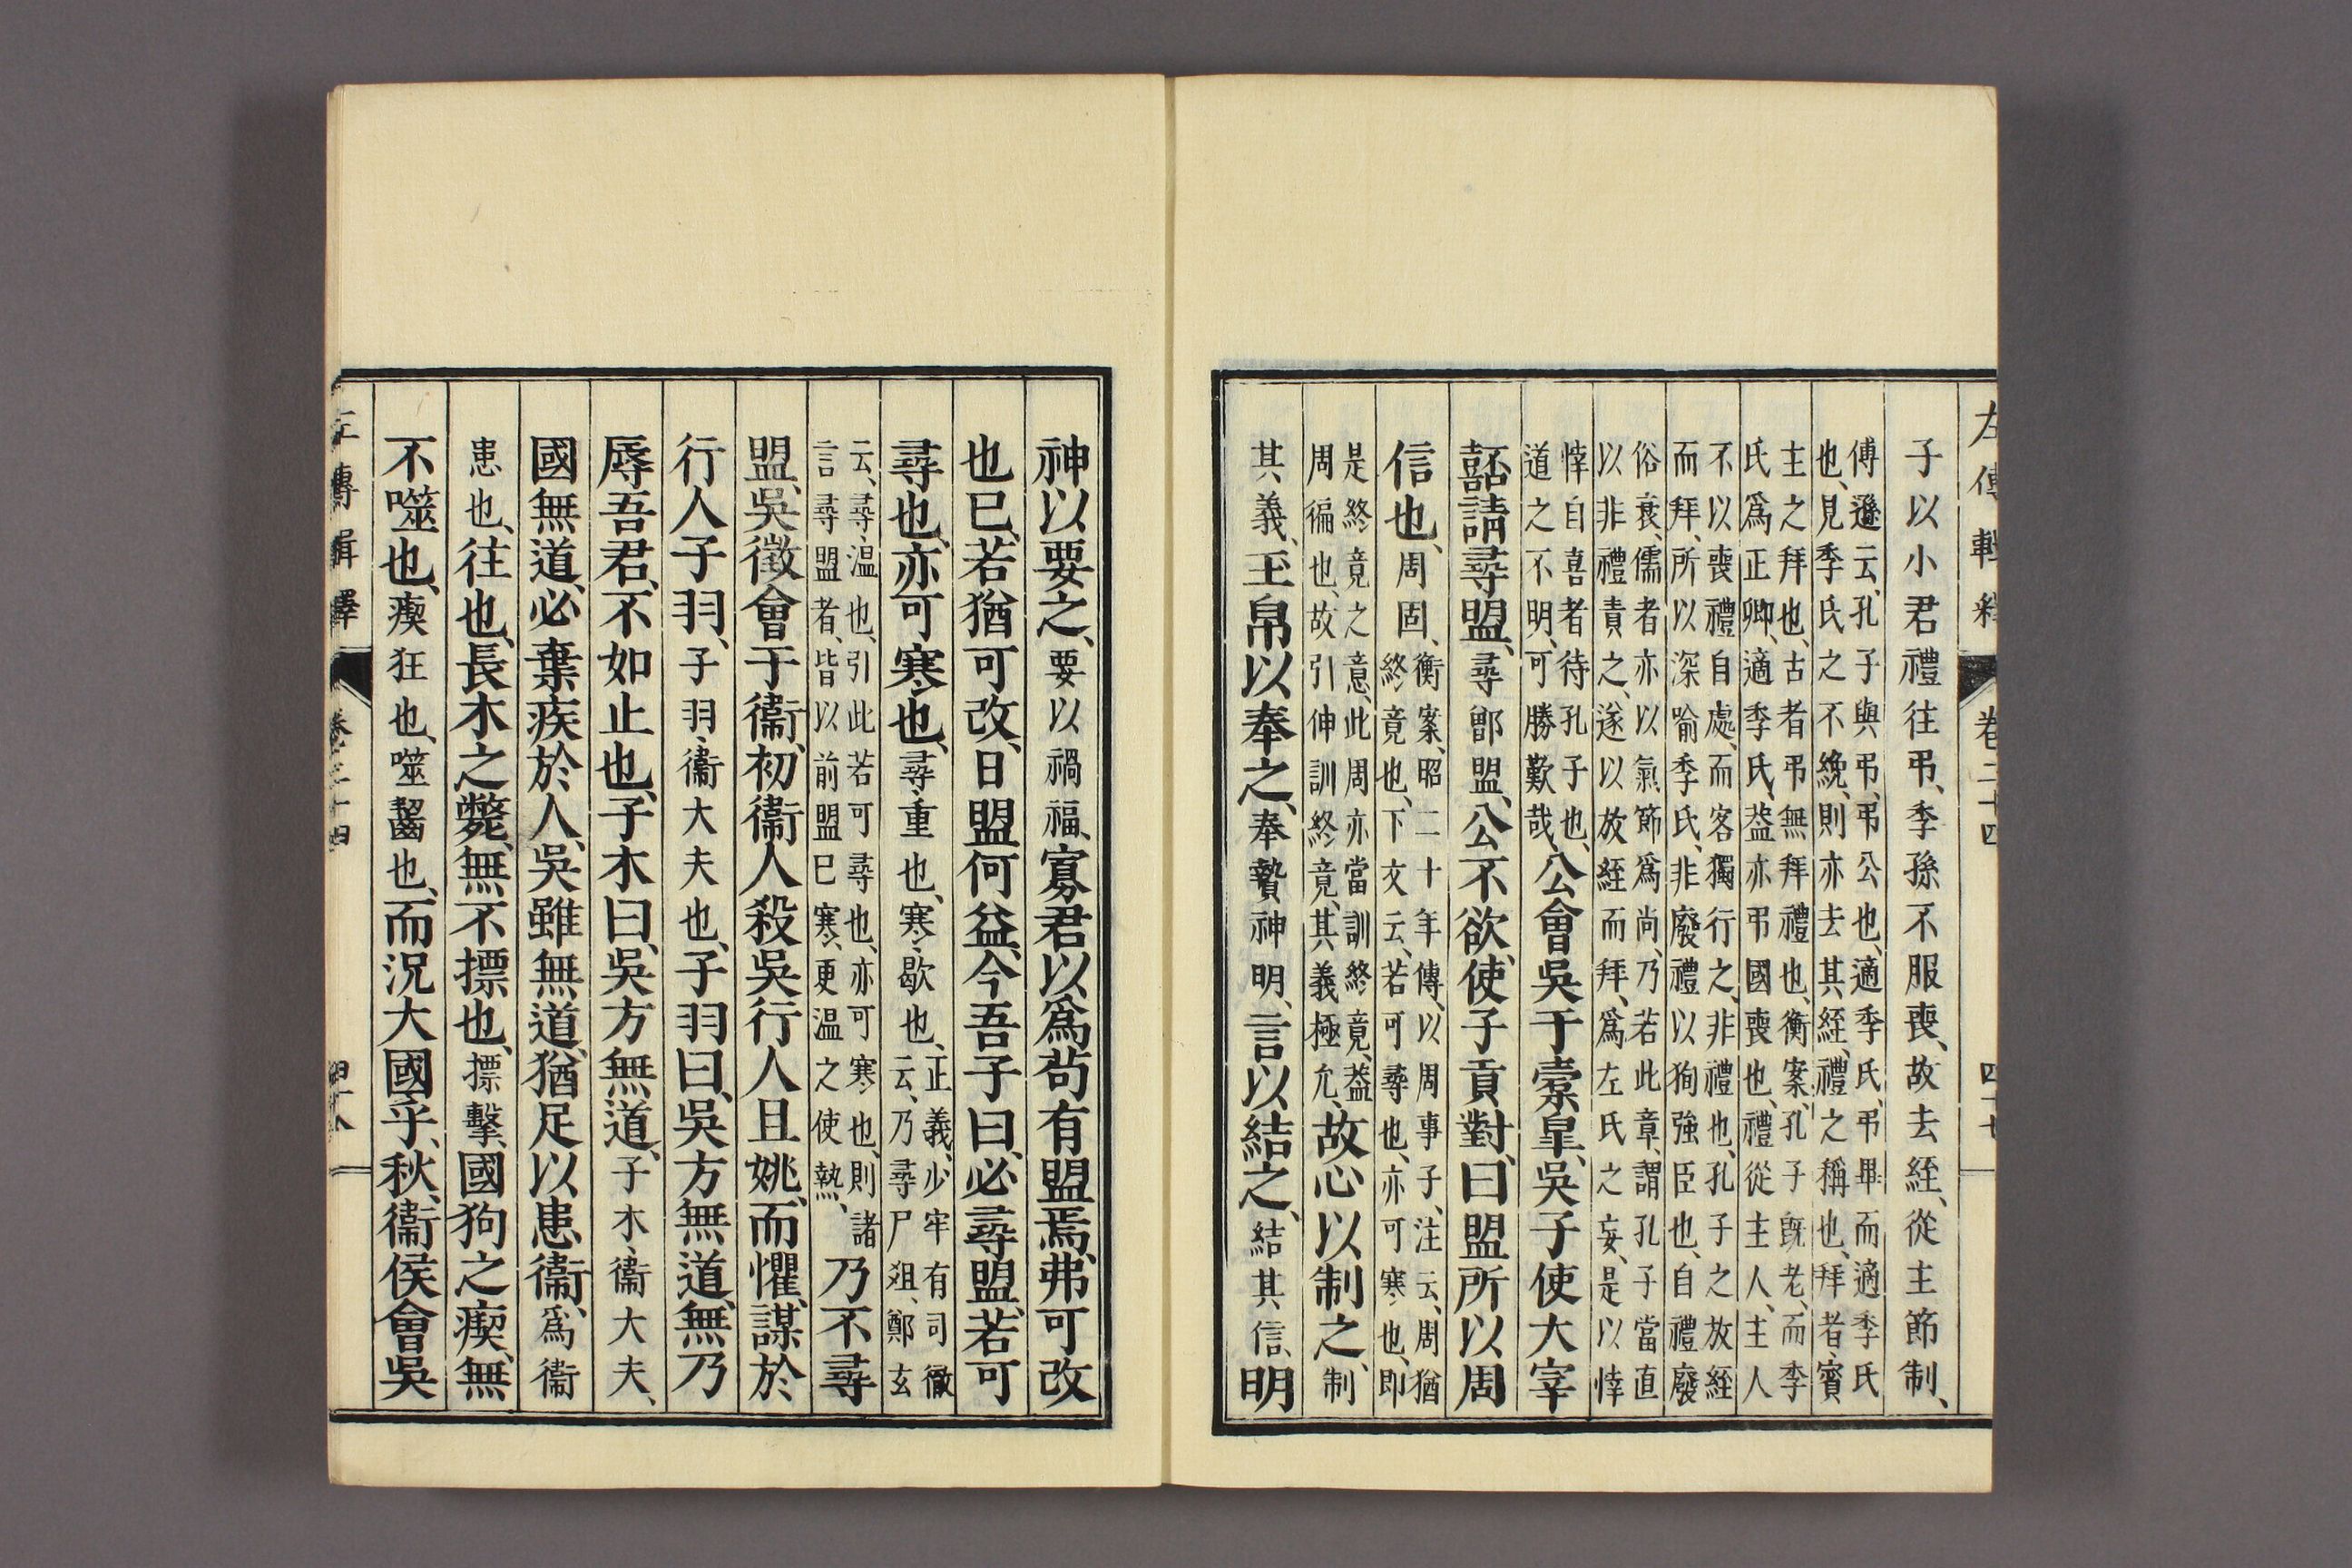 左傳輯釋 卷二十四 四十七
子以小君禮往弔、季孫不服喪、故去絰、從主節制、
傅遜云、孔子與弔、弔公也、適季氏、弔畢而適季氏
也、見季氏之不絻、則亦去其絰、禮之稱也、拜者、賓
主之拜也、古者弔無拜禮也、衡案、孔子既老、而季
氏爲正卿、適季氏、葢亦弔國喪也、禮從主人、主人
不以喪禮自處、而客獨行之、非禮也、孔子之放絰
而拜、所以深喻季氏、非廢禮以狥強臣也、自禮廢
俗衰、儒者亦以氣節爲尚、乃若此章、謂孔子當直
以非禮責之、遂以放絰而拜、爲左氏之妄、是以悻
悻自喜者待孔子也、
道之不明、可勝歎哉、公會吳于橐皐、吳子使大宰
嚭請尋盟、尋鄫盟、公不欲、使子貢對、曰盟所以周
信也、周固、衡案、昭二十年傳、以周事子、注云、周猶
終竟也、下文云、若可尋也、亦可寒也、即
是終竟之意、此周亦當訓終竟、葢
周徧也、故引伸訓終竟、其義極允、故心以制之、制
其義、玉帛以奉之、奉贄神明、言以結之、結其信、明
神以要之、要以禍福、寡君以爲苟有盟焉、弗可改
也巳、若猶可改、日盟何益、今吾子曰、必尋盟、若可
尋也、亦可寒也、尋、重也、寒、歇也、正義、少牢有司徹
云、乃尋尸俎、鄭玄
云、尋、温也、引此若可尋也、亦可寒也、則諸
言尋盟者、皆以前盟巳寒、更温之使熱、乃不尋
盟、吳徵會于衞、初衞人殺吳行人且姚、而懼、謀於
行人子羽、子羽、衞大夫也、子羽曰、吳方無道、無乃
辱吾君、不如止也、子木曰、吳方無道、子木、衞大夫、
國無道、必棄疾於人、吳雖無道、猶足以患衞、爲衞
患也、往也、長木之斃、無不摽也、摽擊、國狗之瘈、無
不噬也、瘈狂也、噬齧也、而況大國乎、秋、衞侯會吳
左傳輯釋 卷二十四 四十八